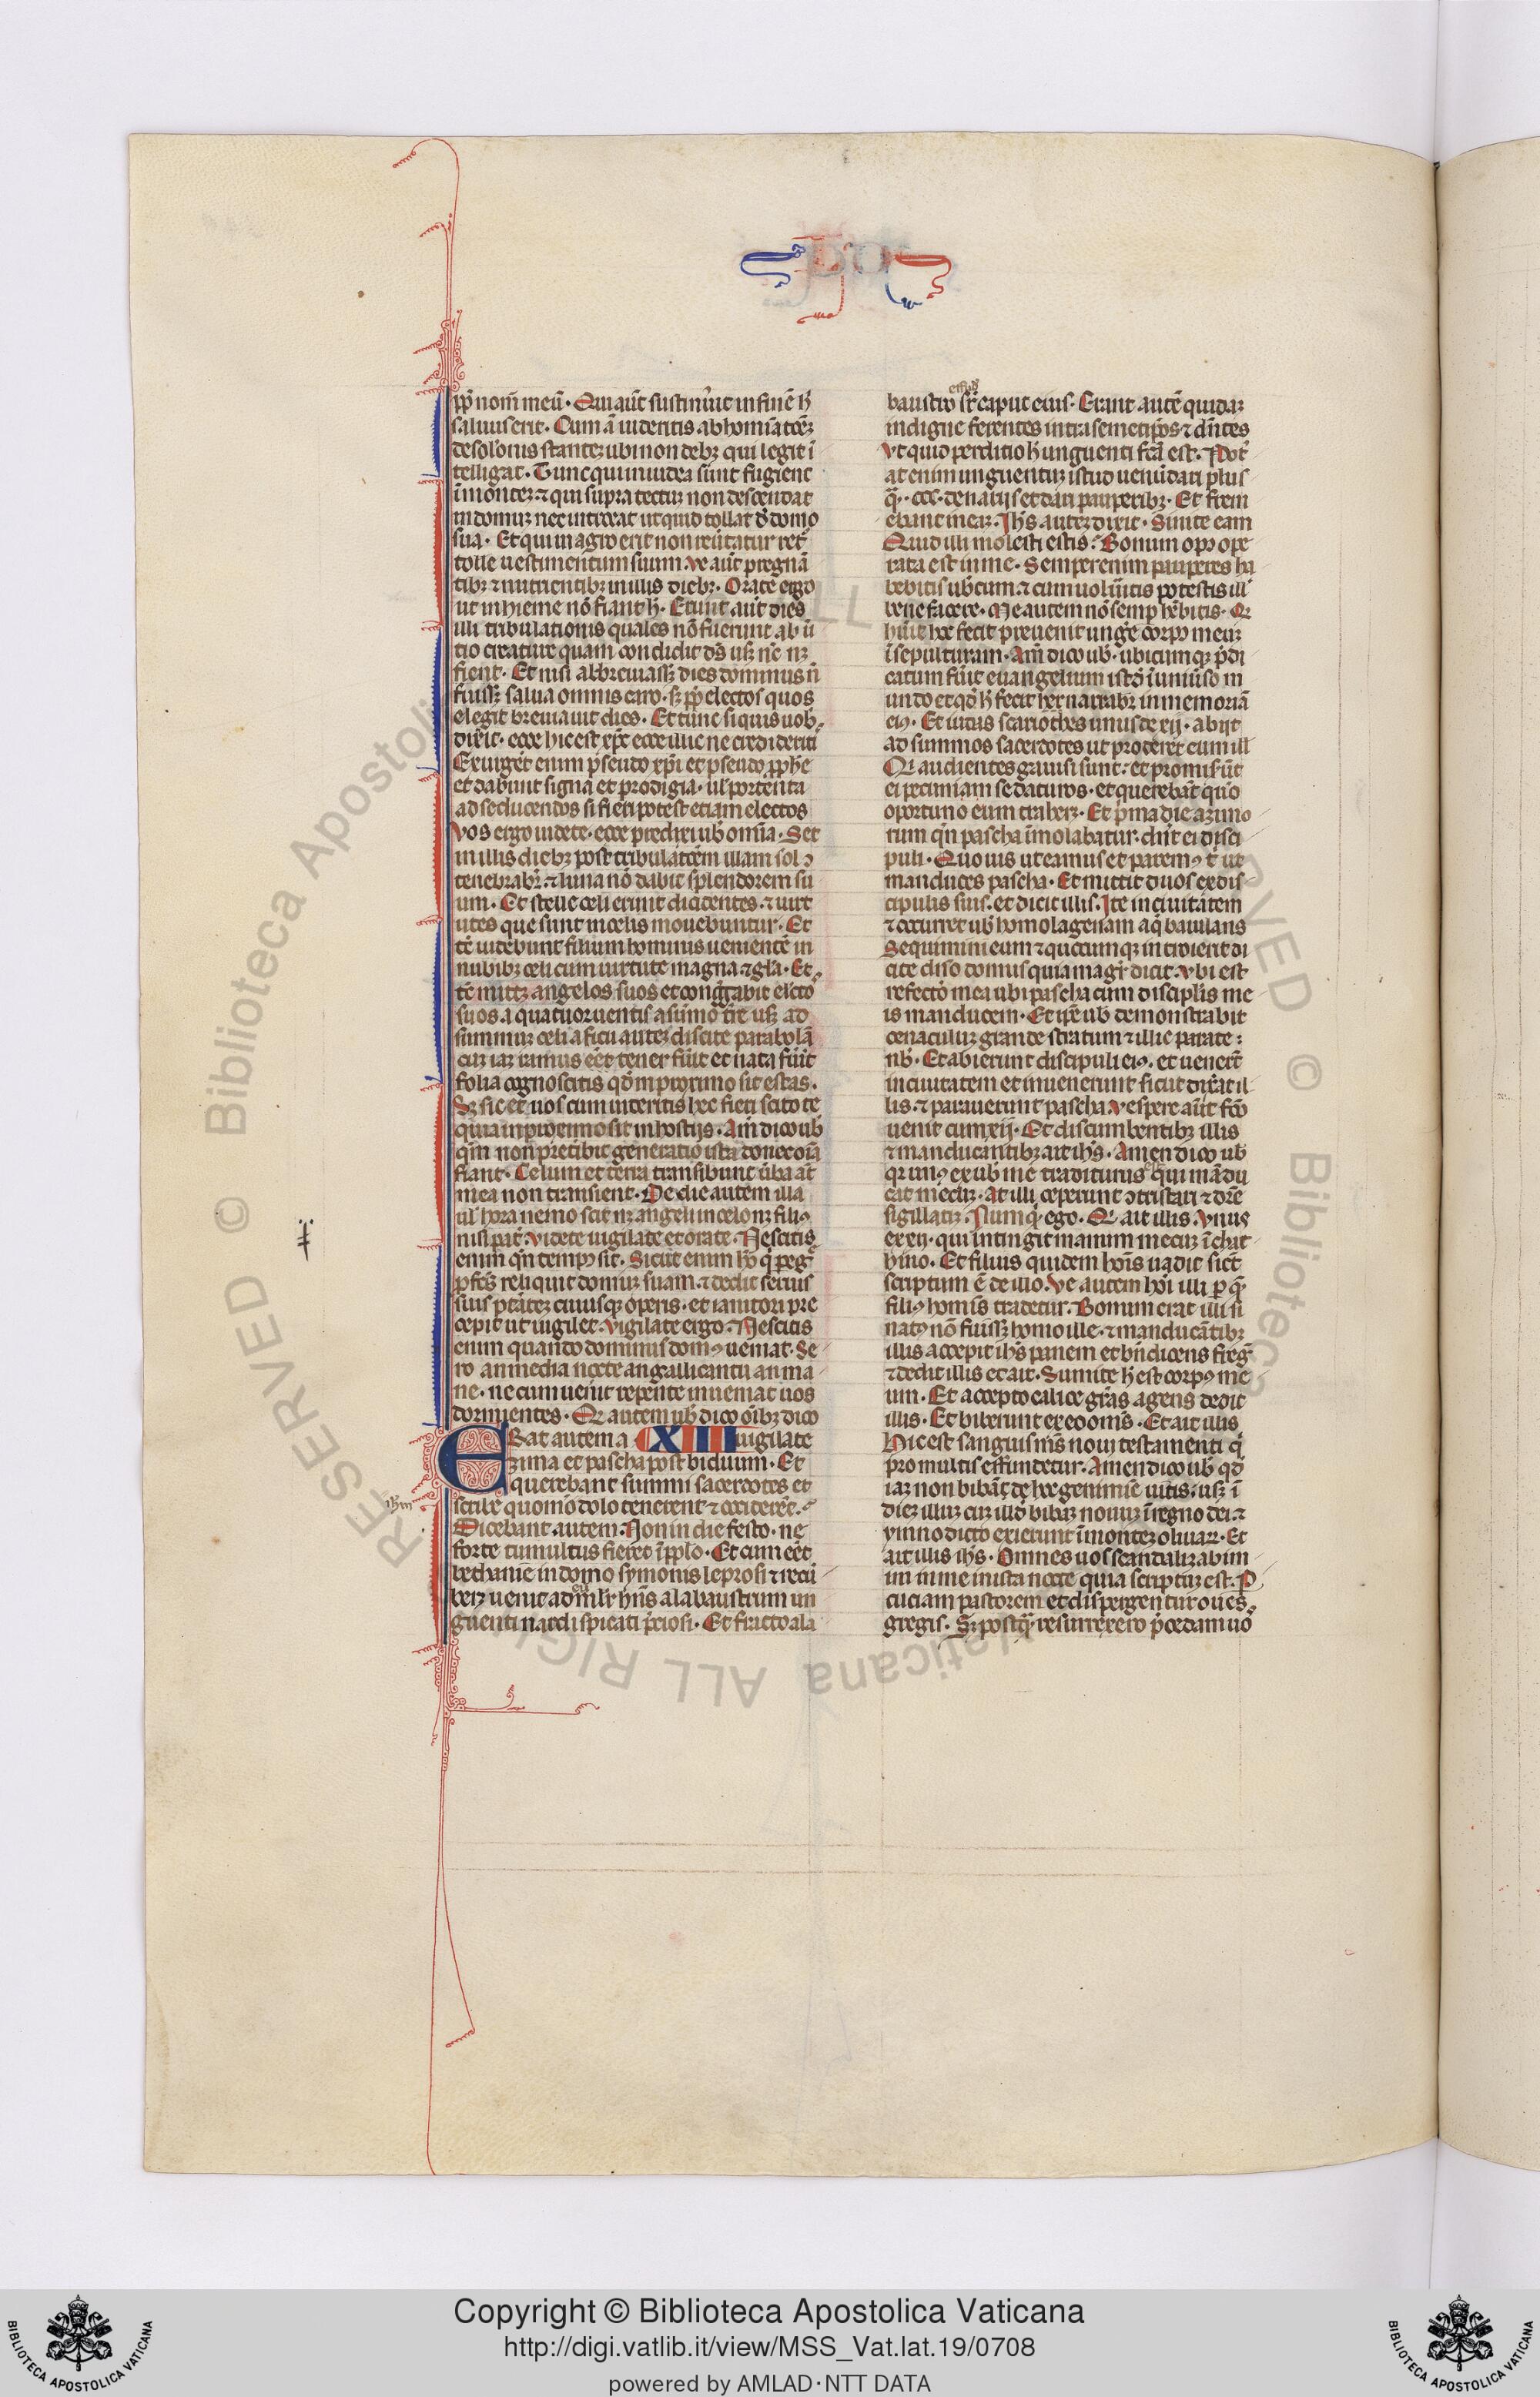 pp̄ nom̄ meū. Qui aūt sustinu̓it in finē ħ
saluus erit. Cum ā uideritis abhomīatōꝫ
desolōnis stanteꝫ ubi non debꝫ qui legit ī
telligat. Tunc qui in iudea sūnt fugient
ī monteꝫ ⁊ qui supra tectuꝫ non descendat
in domuꝫ nec introeat ut quid tollat d̓ domo
sua. Et qui in agro erit non reu̓tatur ret̓
tolle uestimentum suum. ve aūt pregnā
tibꝫ ⁊ nutrientibꝫ in illis diebꝫ. Orate ergo
ut in hieme nō fiant ħ. Erunt aūt dies
illi tribulationis quales nō fuerunt ab ī
tio creature quam condidit ds̄ usꝫ nc̄ nꝫ
fient. Et nisi abbreuiassꝫ dies dominus n̄
fuissꝫ salua omnis caro. sꝫ pp̄ electos quos
elegit breuiauit dies. Et tunc si quis uob̓
dix̓it. ecce hic est xp̄c ecce illic ne credideriti
Exurgēt enim pseudo xp̄i et pseudo pp̄he
et dabunt signa et prodigia. ul̓ portenta
ad seducendos si fieri potest etiam electos
vos ergo uidete. ecce predixi ub̓ omīa. Set
in illis diebꝫ post tribulatōem illam sol ↄ
tenebrabr̄. ⁊ luna nō dabit splendorem su
um. Et stelle celi erunt decidentes. ⁊ uirt
utes que sunt in celis mouebuntur. Et
tc̄ uidebunt filium hominis uenientē in
nubibꝫ celi cum uirtute magna ⁊ gl̄a. Et
tc̄ mittꝫ angelos suos et cong̓gabit elcto
suos. a quatuor uentis a sūmo tr̄e usꝫ ad
summuꝫ celi a ficu auteꝫ discite parabolā
cuꝫ iaꝫ ramus ei̓ tener fūit et nata fūit
folia cognoscitis qd̄ in proximo sit estas.
Sꝫ sic et uos cum uideritis hec fieri scitote
quia in proximo sit in hostijs. Am̄ dico ub̓
qm̄ non pretibit generatio ista donec oīa
fiant. Celum et terra transibunt u̓ba aūt
mea non transient. De die autem illa
ul̓ hora nemo scit nꝫ angeli in celo nꝫ filiꝰ
nisi pat̓. videte uigilate et orate. Nescitis
enim qn̄ tempꝰ sit. Sicut enim hō q̓ peg̓
p̓fectꝰ reliquit domuꝫ suam ⁊ dedit seruis
suis ptāteꝫ cuiusqꝫ operis. et ianitori pre
cepit ut uigilet. vigilate ergo. Nescitis
enim quando dominus domꝰ ueniat. Se
ro an media nocte an gallicantu an ma
ne. ne cum uenīt repente inueniat uos
dormientes. Q̄ autem ub̓ dico oībꝫ dico
ERat autem a XIIII uigilate
zima et pascha post biduum. Et
querebant summi sacerdotes et
scribe quomo dolo tenerent ⁊ occiderēt.
ih̄m
Dicebant autem. Non in die festo. ne
forte tumultus fieret ī pplo. Et cum eēt
bethanie in domo symonis leprosi ⁊ recū
beꝫ uenit ad eū ml̓r hn̄s alabaustrum un
guenti nardi spicati p̓ciosi. Et fracto ala
effud̓
baustro sr̄ caput eius. Erant autē quidaꝫ
indigne ferentes intra semetipos ⁊ dn̄tes
vt quid perditio ħ unguenti fcā est. Pot̓
at enim unguentuꝫ istud uenūdari plus
q̄. ccc. denarijs et dari pauperibꝫ. Et frem
ebant in eaꝫ. Ihs̄ auteꝫ dixit. Sinite eam
Quid illi molesti estis. Bonum opꝰ ope
rata est in me. Semper enim pauperes ha
bebitis ub̓cum. ⁊ cum uolūitis potestis ill̓
bene facere. Me autem nō semp̄ hēbitis. Q̄
hūit hec fecit preuenit unge̓ corpꝰ meuꝫ
ī sepulturam. Am̄ dico ub̓. ubicumqꝫ p̓di
catum fūit euangelium istđ ī uniūso m
undo et qđ ħ fecit hec narrabr̄ in memoriā
eiꝰ. Et iudas scariothes unus de xij. abijt
ad summos sacerdotes ut proderet eum ill̓
Qi audientes gauisi sunt. et promis̓ūt
ei pecuniam se daturos. et querebat quō
oportuno eum traderꝫ. Et p̓ma die azimo
rum qn̄ pascha īmolabatur. dn̄t ei disci
puli. Quo uis ut eamus et paremꝰ t̓ ut
manduces pascha. Et mittit duos ex dis
cipulis suis. et dicit illis. Ite in ciuitatem
⁊ occurret ub̓ homo lagenam aq̄ baiulans
Sequimini eum ⁊ quocumqꝫ introierit di
cite dn̄o domus quia magr̄ dicit. vbi est
refectō mea ubi pascha cum discipl̄is me
is manducem. Et ipe ub̓ demonstrabit
cenaculuꝫ grande stratum ⁊ illic parate
nb̓. Et abierunt discipuli eiꝰ. et uenert̄
in ciuitatem et inuenerunt sicut dix̓at il
lis. ⁊ parauerunt pascha. vespere aūt fcō
uenit cum xij. Et discumbentibꝫ illis
⁊ manducantibꝫ ait ihs̄. Amen dico ub̓
qꝫ unꝰ ex ub̓ me traditurus est qui mādu
cat mecuꝫ. At illi ceperunt ↄtristari ⁊ dic̄e
sigillatiꝫ. Nunq̓d ego. Q̓ ait illis. Vnus
ex xij. qui intingit manum mecuꝫ ī cat
hino. Et filius quidem hoīs uadit sict̄
scriptum ē de illo. Ve autem hoī illi p̱ q̄
filiꝰ homīs tradetur. Bonum erat illi si
natꝰ nō fuissꝫ homo ille. ⁊ manducātibꝫ
illis accepit ihs̄ panem et bn̄dicens freg̓
⁊ dedit illis et ait. Sumite ħ est corpꝰ me
um. Et accepto calice gr̄as agens dedit
illis. Et biberunt ex eo oms̄. Et ait illis
Hic est sanguis ms̄ noui testamenti q̓
pro multis effundetur. Amen dico ub̓ qđ
iaꝫ non bibā de hoc genimīe uitis. usꝫ ī
dieꝫ illuꝫ cuꝫ illđ bibaꝫ nouuꝫ ī regno dei. ⁊
ymno dicto exierunt ī monteꝫ oliuaꝝ. Et
ait illis ihs̄. Omnes uos scandalizabim
ini in me in ista nocte quia scriptuꝫ est. P̱
cuciam pastorem et dispergentur oues
gregis. Sꝫ postq̄ resurrexero p̓cedam uo
Copyright © Biblioteca Apostolica Vaticana
http://digi.vatlib.it/view/MSS_Vat.lat.19/0708
powered by AMLAD·NTT DATA
BIBLIOTECA APOSTOLICA VATICANA
BIBLIOTECA APOSTOLICA VATICANA